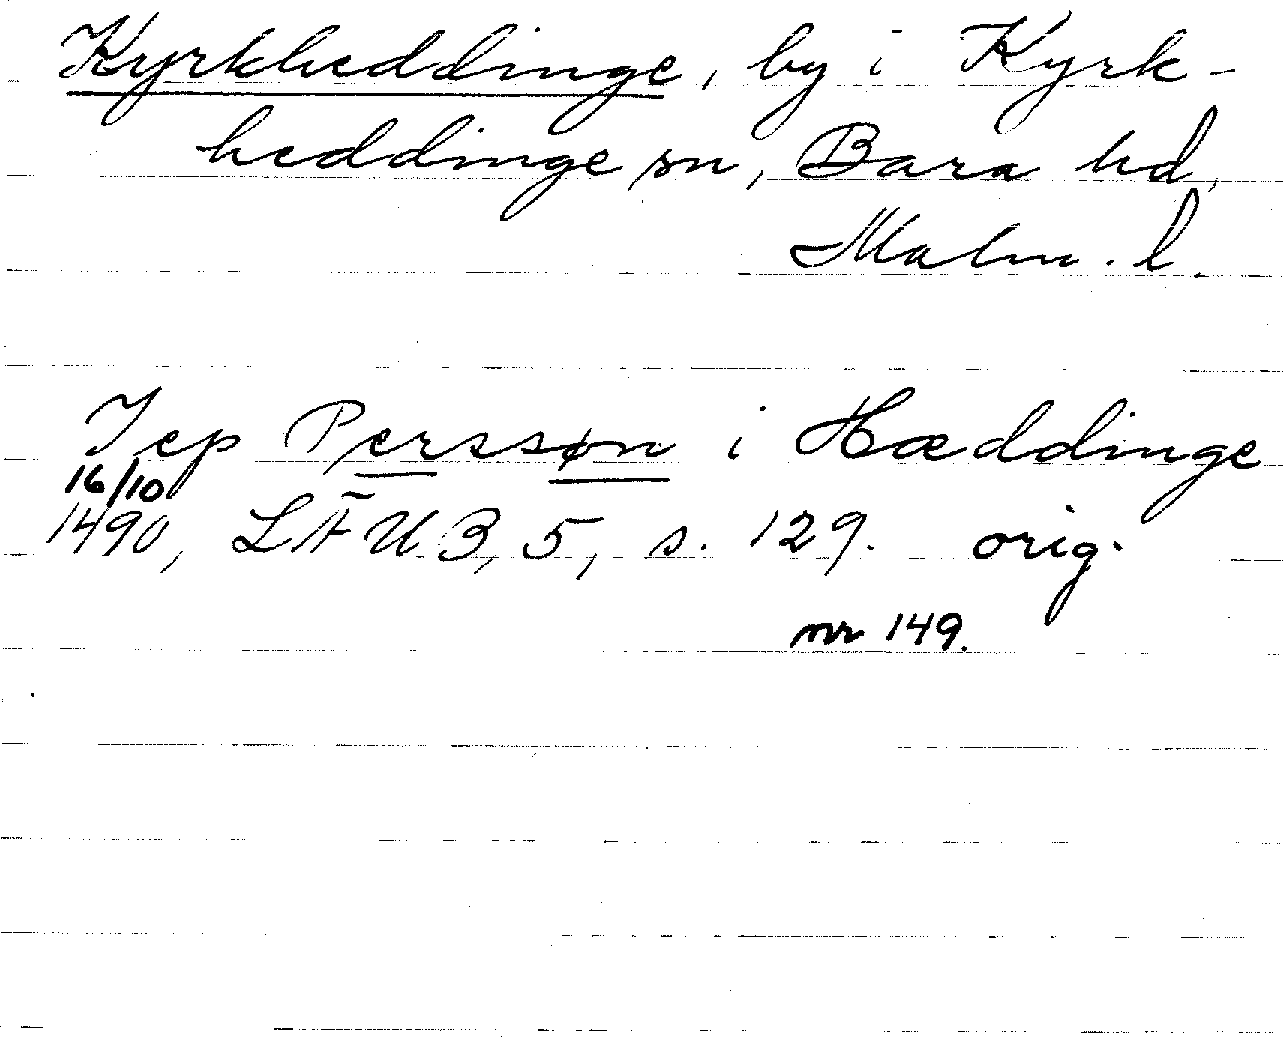 Kyrkheddinge, by i Kyrk-
heddinge sn, Bara hd,
Malm. l.
Jep Perssøn i Hæddinge
16/10
1490, LÄUB, 5, s. 129. orig.
nr 149.